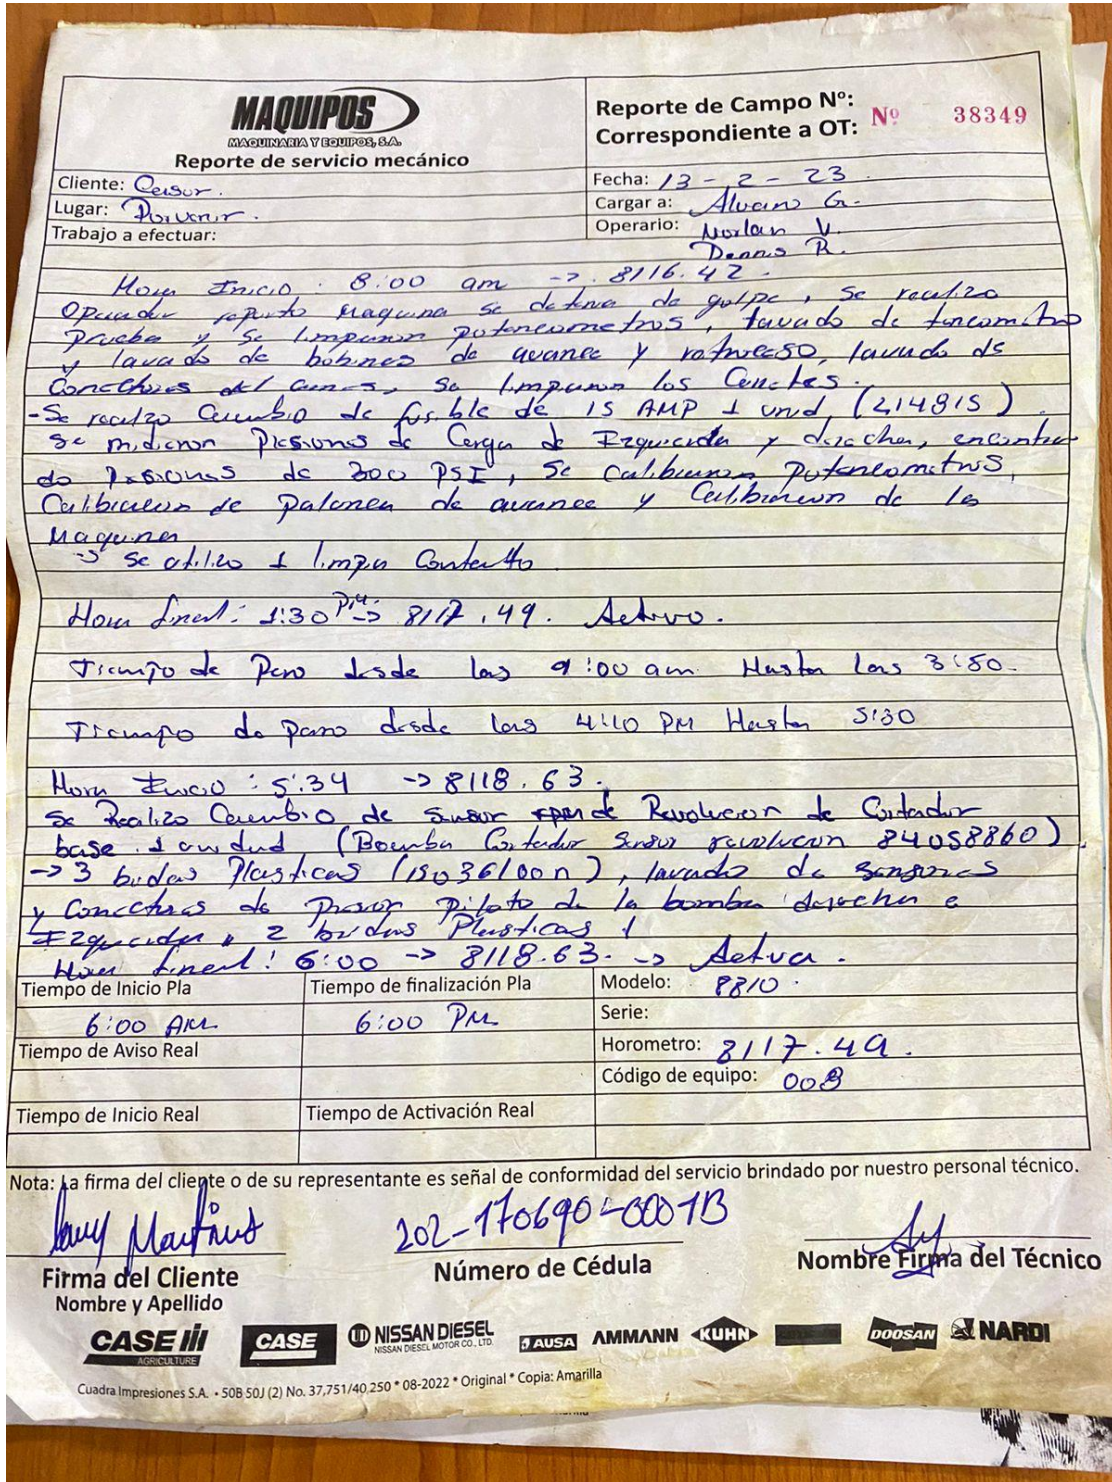 MAQUIPOS
MAQUINARIA Y EQUIPOS, S.A.
Reporte de servicio mecánico
Reporte de Campo Nº:
Correspondiente a OT: Nº 38349
Cliente: Casur.
Fecha: 13 - 2 - 23
Lugar: Porvenir.
Cargar a: Alvaro G.
Trabajo a efectuar:
Operario: Norlan V.
Dennis R.
Hora Inicio : 8:00 am -> 8116.42.
Operador reporto Maquina se detenia de golpe, se realizo
prueba y se limpiaron potenciometros, lavado de
y lavado de bobinas de avance y retroceso, lavado de
Conectores del arnes, se limpiaron los
-Se realizo Cambio de fusible de 15 AMP 1 unid, (214815)
se midieron Presiones de Carga de Izquierda y derecha, encontra
do Presiones de 300 PSI, Se Calibraron Potenciometros,
Calibracion de palanca de avance y Calibracion de la
Maquina
-> se utilizo 1 limpia Contacto
Hora final: 1:30 PM -> 8117.49. Activo.
Tiempo de Paro desde las 9:00 am Hasta las 3:50.
Tiempo de paro desde las 4:10 PM Hasta 5:30
Hora Inicio : 5:34 -> 8118.63.
Se Realizo Cambio de sensor rpm de Revolucion de Cortador
base 1 unidad (Bomba Cortador Sensor revolucion 84058860).
-> 3 bridas Plasticas (15036100n), lavado de Sensores
y Conectores de presion piloto de la bomba derecha e
Izquierda, 2 bridas Plasticas
Hora final: 6:00 -> 8118.63. -> Activa.
Tiempo de Inicio Pla
Tiempo de finalización Pla
Modelo: 8810.
6:00 AM
6:00 PM
Serie:
Tiempo de Aviso Real
Horometro: 8117.49.
Código de equipo: 008
Tiempo de Inicio Real
Tiempo de Activación Real
Nota: La firma del cliente o de su representante es señal de conformidad del servicio brindado por nuestro personal técnico.
Martinez
202-170690-0001B
Firma del Cliente
Nombre y Apellido
Número de Cédula
Nombre Firma del Técnico
CASE III AGRICULTURE
CASE
NISSAN DIESEL
NISSAN DIESEL MOTOR CO., LTD.
AUSA
AMMANN
KUHN
DOOSAN
NARDI
Cuadra Impresiones S.A. • 50B 50J (2) No. 37,751/40,250 * 08-2022 * Original * Copia: Amarilla